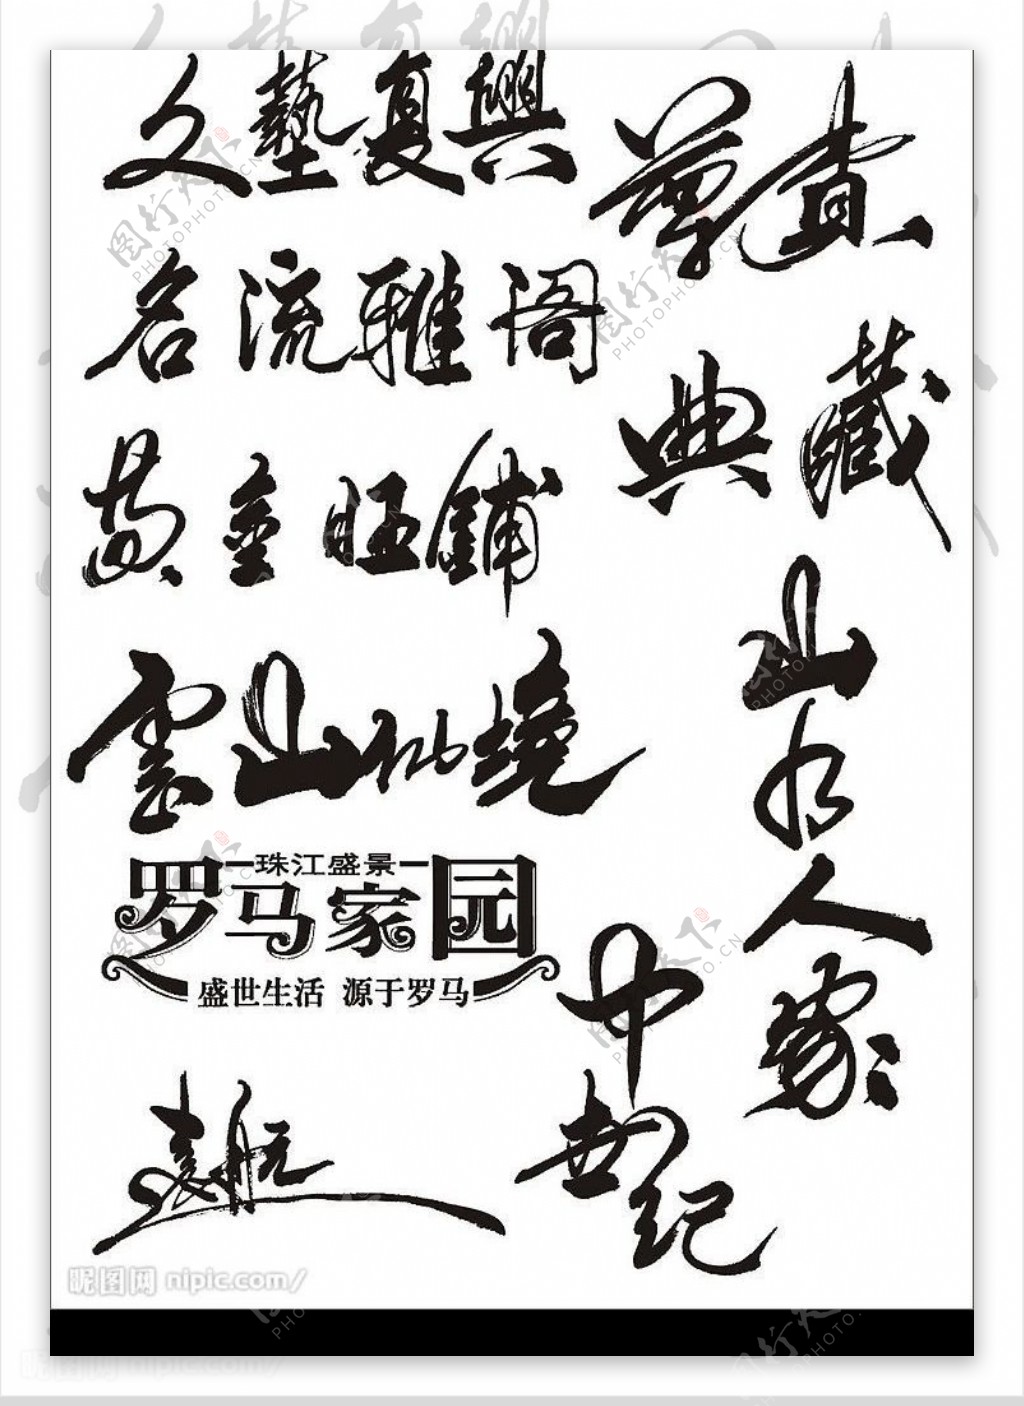 文藝复興
尊貴
名流雅阁
典藏
黄金旺鋪
雲山仙境
山水人家
珠江盛景
罗马家园
盛世生活 源于罗马
中世纪
遠航
昵图网 nipic.com/
图行天下 PHOTOPHOTO.CN